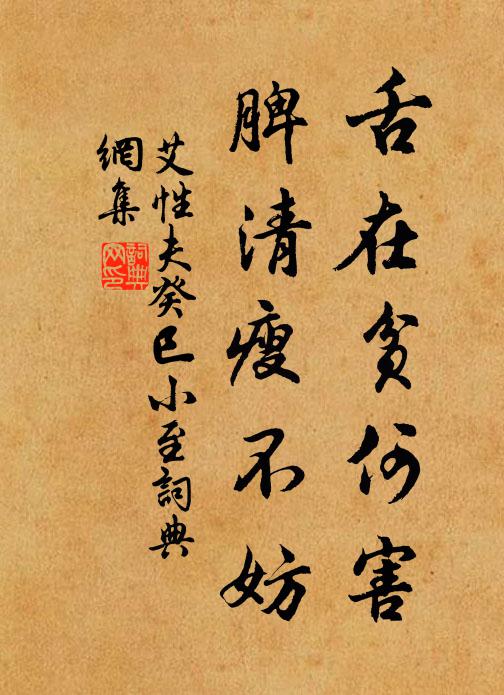 舌在貧何害
脾清瘦不妨
艾性夫癸巳小至詞典
網集
詞典
網印